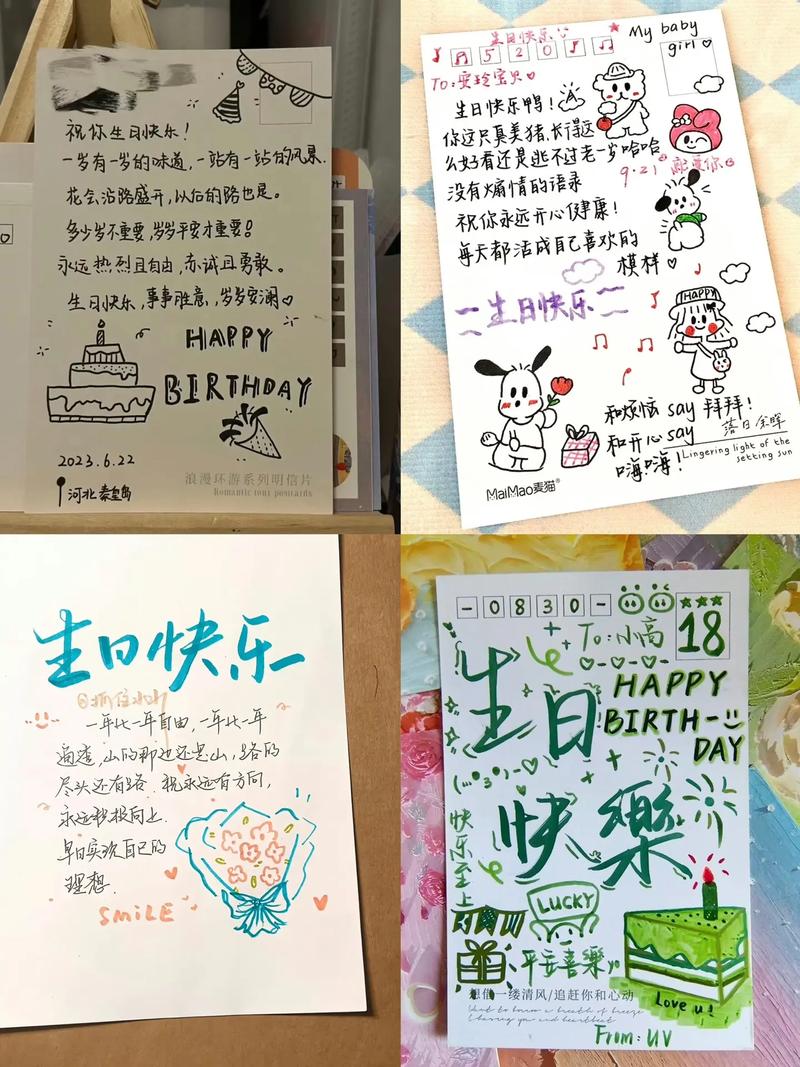 祝你生日快乐!
一岁有一岁的味道,一站有一站的风景.
花会沿路盛开,以后的路也是。
多少岁不重要,岁岁平安才重要!
永远热烈且自由,亦诚且勇敢。
生日快乐,事事胜意,岁岁安澜
HAPPY
BIRTHDAY
2023.6.22
河北秦皇岛
浪漫环游系列明信片
Romantic tour postcards
生日快乐
520
My baby
girl
To:雯玲宝贝
生日快乐鸭!
你这只真美猪,长得这
么好看还是逃不过老一岁哈哈
9.21
没有煽情的语录
祝你永远开心健康!
每天都活成自己喜欢的
模样
生日快乐
HAPPY
和烦恼 say 拜拜!
和开心 say
嗨嗨!
落日余晖
Lingering light of the
setting sun
MaiMao麦猫®
生日快乐
一年比一年自由,一年比一年
通透,山的那边还是山,路的
尽头还有路 祝永远有方向,
永远积极向上.
早日实现自己的
理想.
SMILE
-0830-
To:小高
18
生日
HAPPY
BIRTH-
DAY
快樂
快乐至上
LUCKY
平安喜樂
想借一缕清风/追赶你和心动
Love u!
From: UV